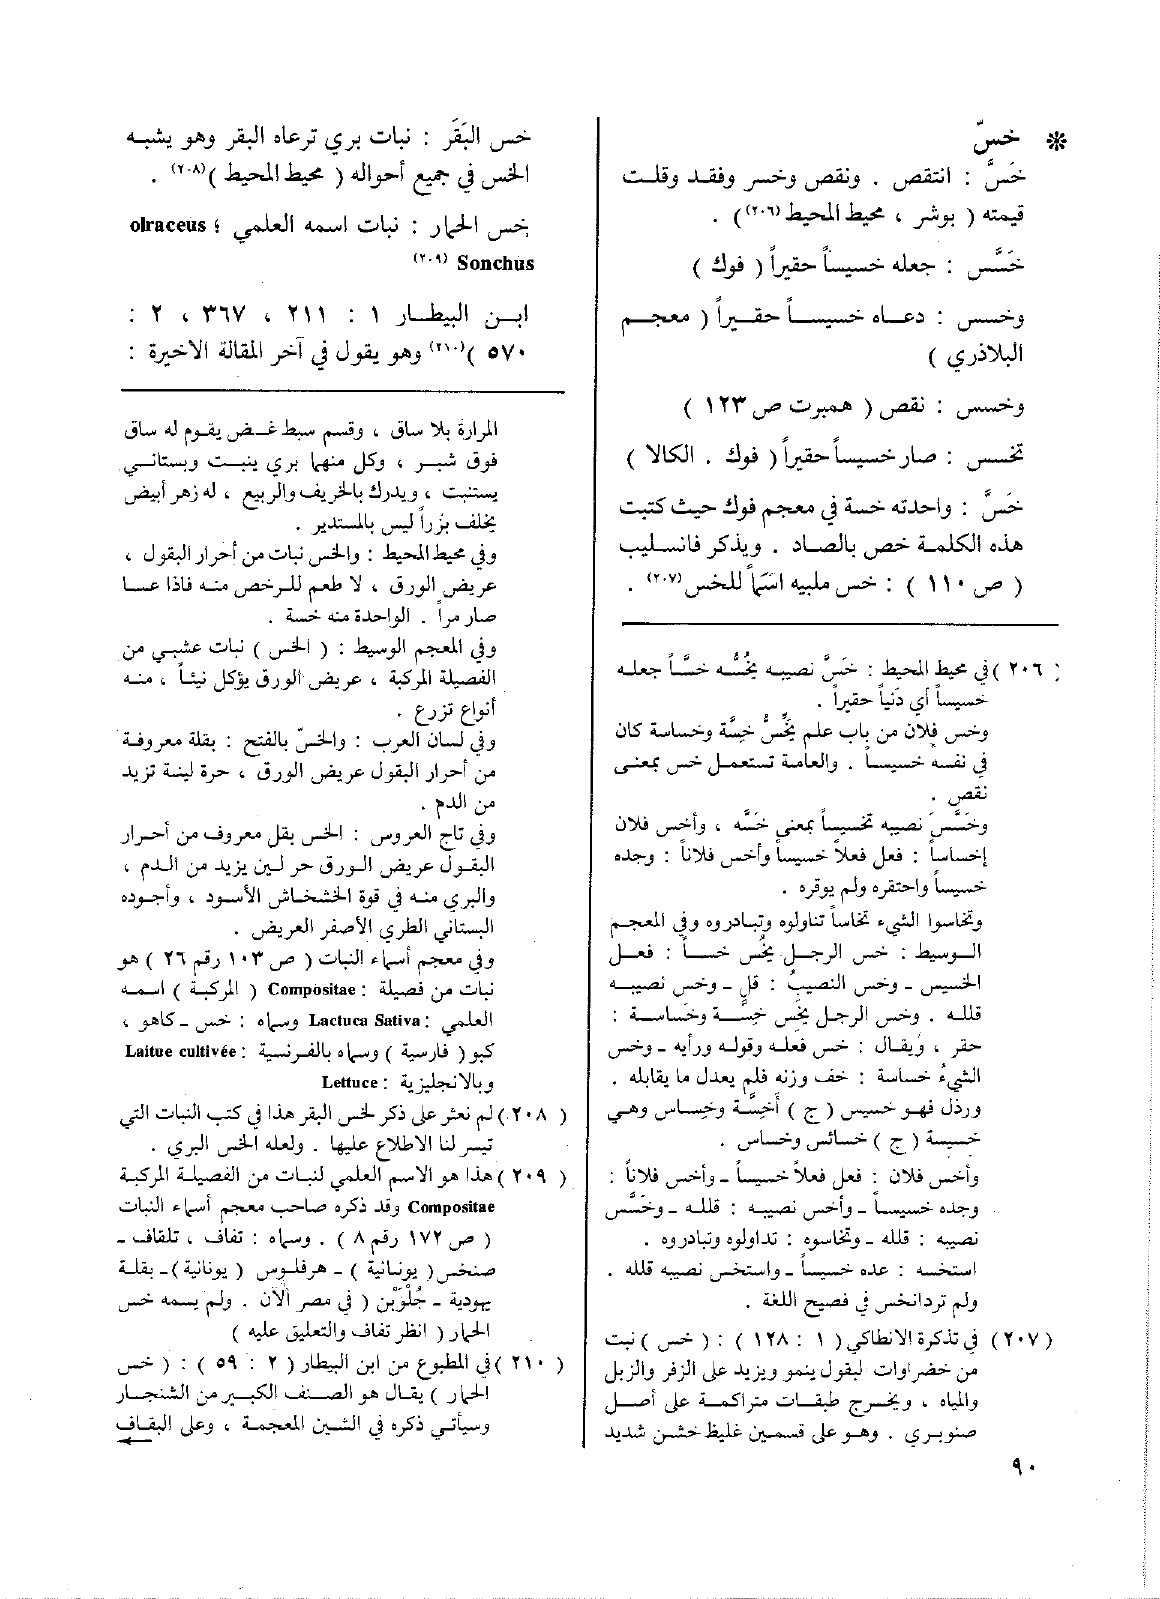 * خسّ
خَسَّ : انتقص . ونقص وخسر وفقد وقلت
قيمته ( بوشر ، محيط المحيط (٢٠٦)) .
خَسَّس : جعله خسيساً حقيراً ( فوك )
وخسس : دعاه خسيساً حقيراً ( معجم
البلاذري )
وخسس : نقص ( همبرت ص ١٢٣ )
تخسس : صار خسيساً حقيراً ( فوك . الكالا )
خَسَّ : واحدته خسة في معجم فوك حيث كتبت
هذه الكلمة خص بالصاد . ويذكر فانسليب
( ص ١١٠ ) : خس ملبيه اسَماً للخس (٢٠٧) .
خس البَقَر : نبات بري ترعاه البقر وهو يشبه
الخس في جميع أحواله ( محيط المحيط )(٢٠٨) .
خس الحمار : نبات اسمه العلمي ؛ olraceus
Sonchus (٢٠٩)
ابن البيطار ١ : ٢١١ ، ٣٦٧ ، ٢ :
٥٧٠ )(٢١٠) وهو يقول في آخر المقالة الاخيرة :
( ٢٠٦ ) في محيط المحيط : خَسَّ نصيبه يَخُسُّه خسَّاً جعله
خسيساً أي دَنياً حقيراً .
وخس فلان من باب علم يَخِسُّ خِسَّة وخساسة كان
في نفسه خسيساً . والعامة تستعمل خس بمعنى
نقص .
وخَسَّسَ نصيبه تخسيساً بمعنى خَسَّه ، وأخس فلان
إخساساً : فعل فعلاً خسيساً وأخس فلاناً : وجده
خسيساً واحتقره ولم يوقره .
وتخاسوا الشيء تخاساً تناولوه وتبادروه وفي المعجم
الوسيط : خس الرجل يخُس خساً : فعل
الخسيس - وخس النصيبُ : قلّ - وخس نصيبه
قلله . وخس الرجل يخَس خِسَّة وخَساسة :
حقر ، ويُقال : خس فعله وقوله ورأيه - وخس
الشيءُ خساسة : خف وزنه فلم يعدل ما يقابله .
ورذل فهو خسيس ( ج ) أَخِسَّة وخِساس وهي
خسيسة ( ج ) خسائس وخساس .
وأخس فلان : فعل فعلاً خسيساً - وأخس فلاناً :
وجده خسيساً - وأخس نصيبه : قلله - وخَسَّس
نصيبه : قلله - وتخاسوه : تداولوه وتبادروه .
استخسه : عده خسيساً - واستخس نصيبه قلله .
ولم تردانخس في فصيح اللغة .
( ٢٠٧ ) في تذكرة الانطاكي ( ١ : ١٢٨ ) : ( خس ) نبت
من خضراوات لبقول ينمو ويزيد على الزفر والزبل
والمياه ، ويخرج طبقات متراكمة على أصل
صنوبري . وهو على قسمين غليظ خشن شديد
المرارة بلا ساق ، وقسم سبط غض يقوم له ساق
فوق شبر ، وكل منهما بري ينبت وبستاني
يستنبت ، ويدرك بالخريف والربيع ، له زهر أبيض
يخلف بزراً ليس بالمستدير .
وفي محيط المحيط : والخس نبات من أحرار البقول ،
عريض الورق ، لا طعم للرخص منه فاذا عسا
صار مراً . الواحدة منه خسة .
وفي المعجم الوسيط : ( الخس ) نبات عشبي من
الفصيلة المركبة ، عريض الورق يؤكل نيئاً ، منه
أنواع تزرع .
وفي لسان العرب : والخسّ بالفتح : بقلة معروفة
من أحرار البقول عريض الورق ، حرة لينة تزيد
من الدم .
وفي تاج العروس : الخس بقل معروف من أحرار
البقول عريض الورق حر لين يزيد من الدم ،
والبري منه في قوة الخشخاش الأسود ، وأجوده
البستاني الطري الأصفر العريض .
وفي معجم أسماء النبات ( ص ١٠٣ رقم ٢٦ ) هو
نبات من فصيلة : Compositae ( المركبة ) اسمه
العلمي : Lactuca Sativa وسماه : خس - كاهو ،
كبو ( فارسية ) وسماه بالفرنسية : Laitue cultivée
وبالانجليزية : Lettuce
( ٢٠٨ ) لم نعثر على ذكر لخس البقر هذا في كتب النبات التي
تيسر لنا الاطلاع عليها . ولعله الخس البري .
( ٢٠٩ ) هذا هو الاسم العلمي لنبات من الفصيلة المركبة
Compositae وقد ذكره صاحب معجم أسماء النبات
( ص ١٧٢ رقم ٨ ) . وسماه : تفاف ، تلفاف -
صنخس ( يونانية ) - هرفلوس ( يونانية ) - بقلة
يهودية - جُلْوَيْن ( في مصر الآن . ولم يسمه خس
الحمار ( انظر تفاف والتعليق عليه )
( ٢١٠ ) في المطبوع من ابن البيطار ( ٢ : ٥٩ ) : ( خس
الحمار ) يقال هو الصنف الكبير من الشنجار
وسيأتي ذكره في الشين المعجمة ، وعلى البقاف
٩٠